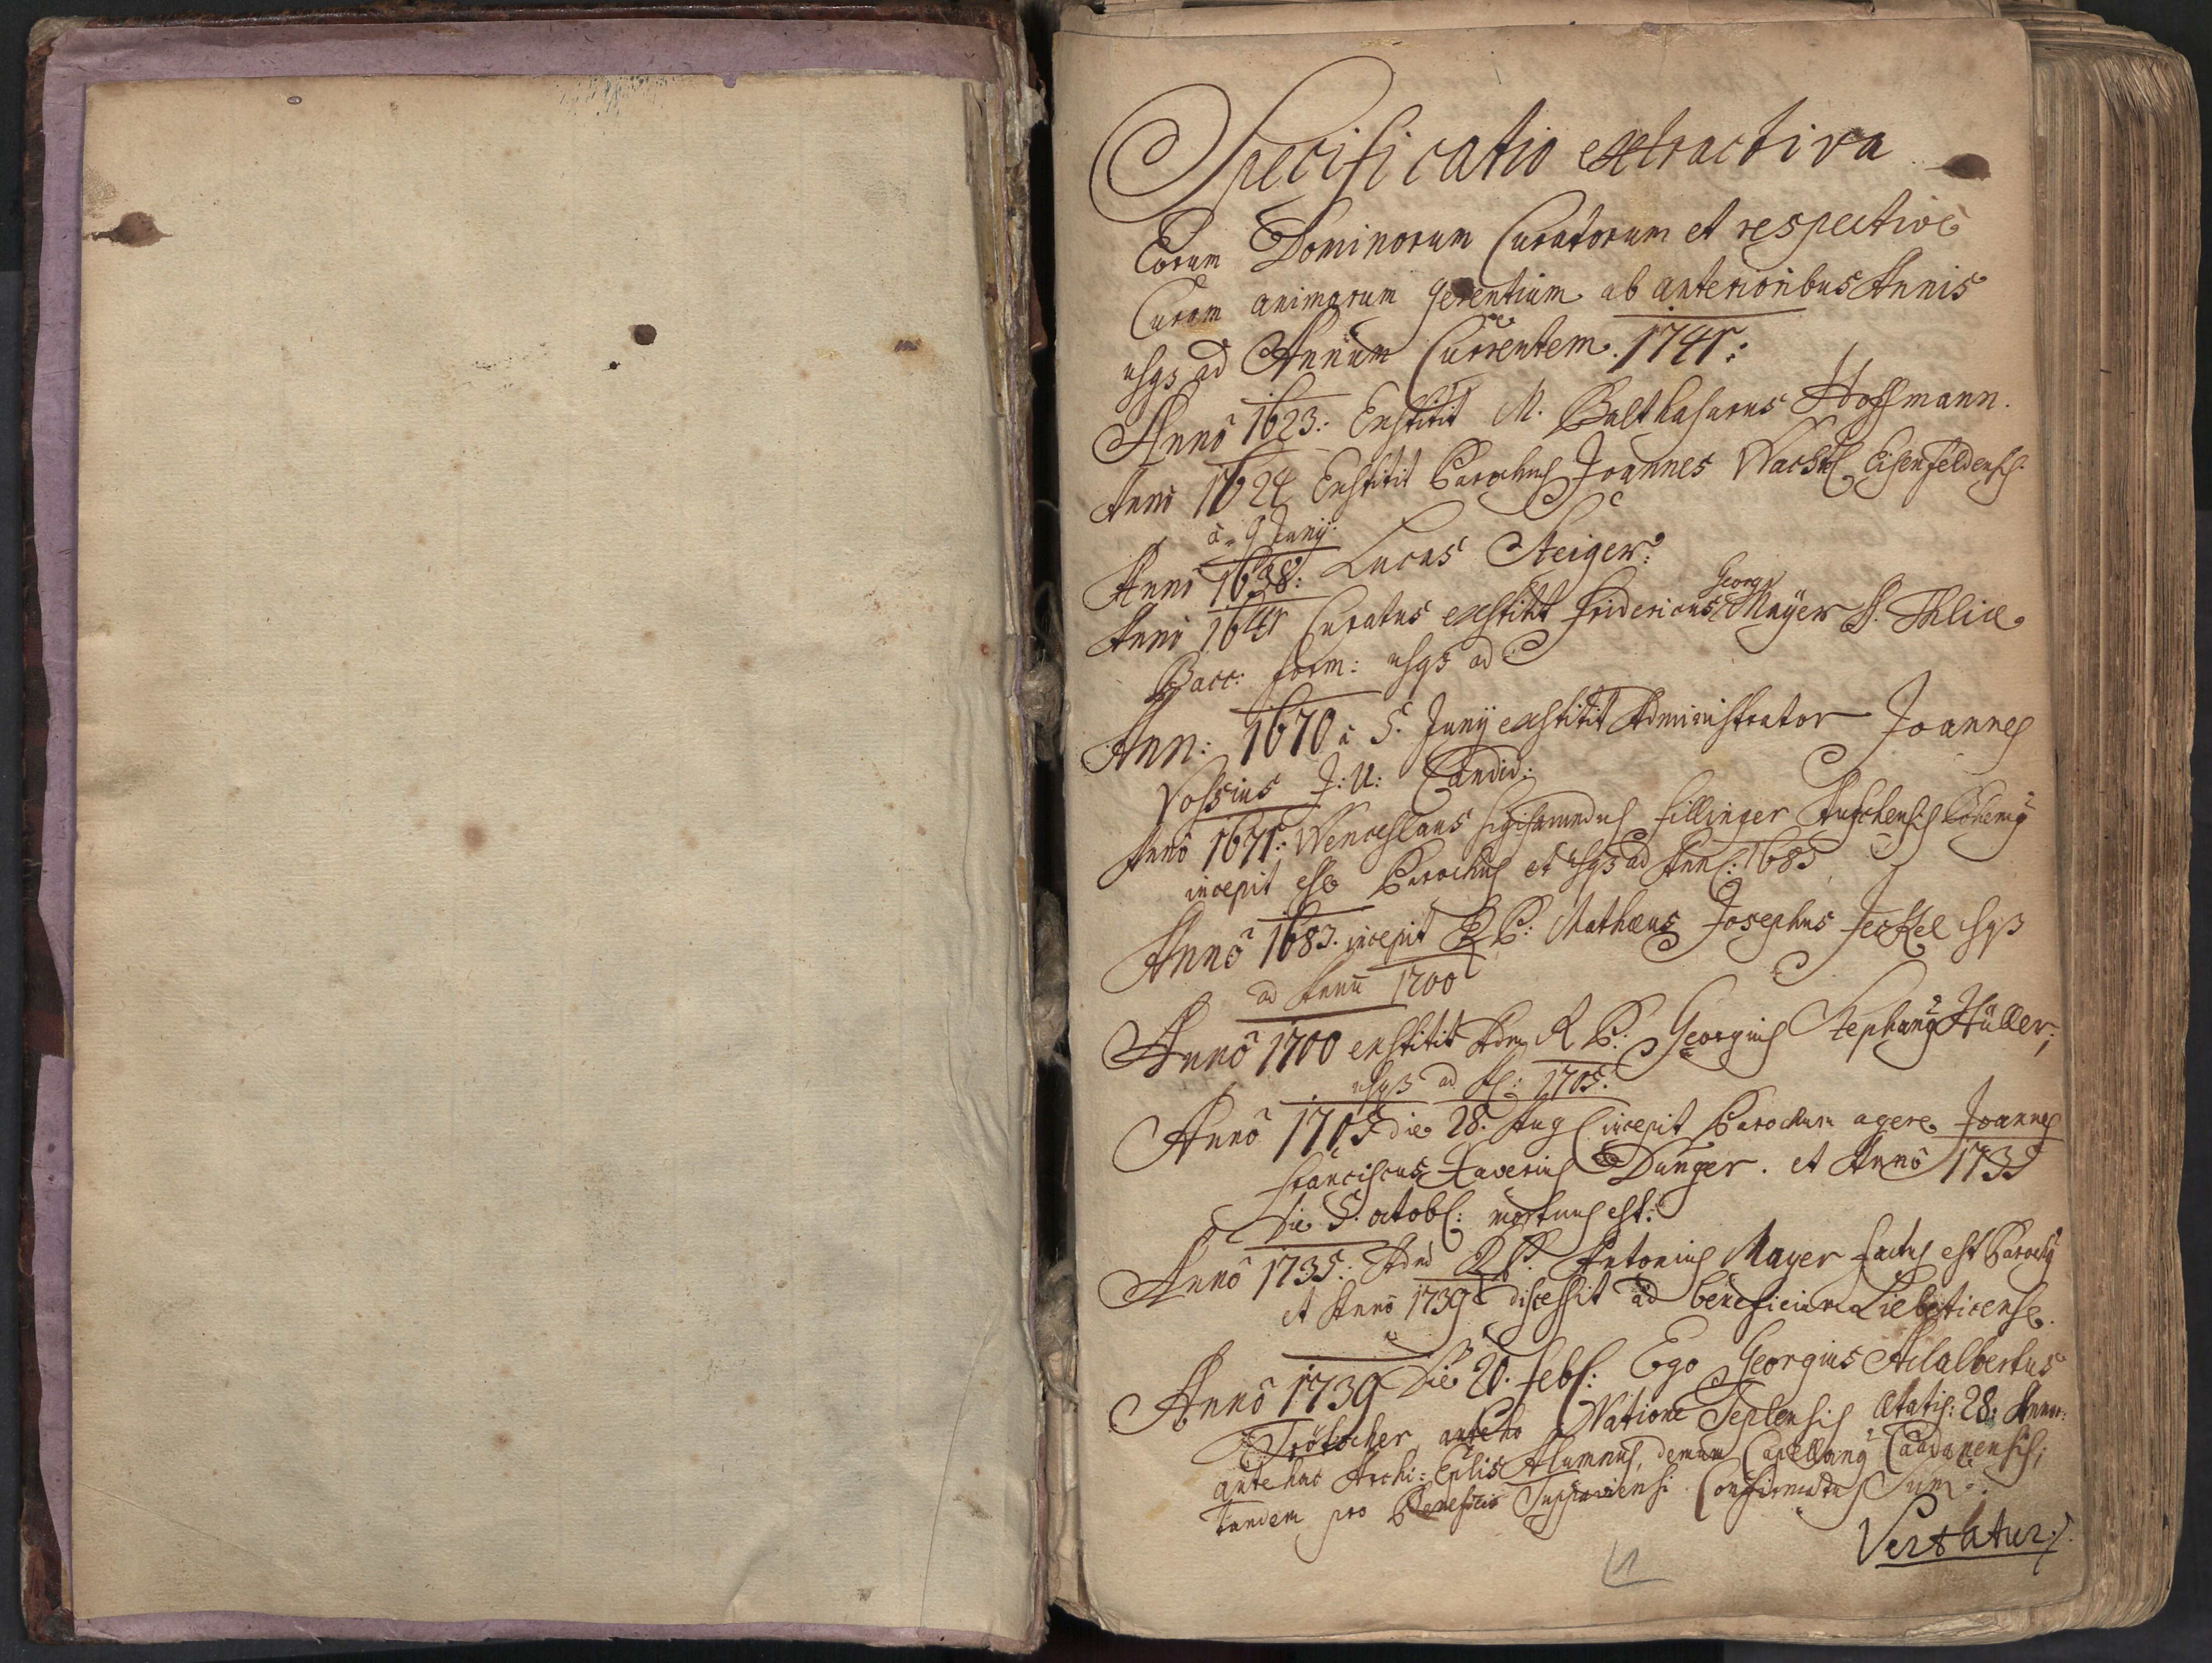 Specificatio extractiva
Eorum Dominorum Curatorum et respective
Curam animarum gerentium ab anterioribus Annis
usqz ad Annum Currentem. 1741:
Annô 1623: Exstitit M. Balthasarus Hoffmann.
Annô 1624 Exstitit Parochus Joannes
à 9 Junij
Annô 1638: Lucas Steiger:
Georg
Annô 1641 Curatus exstitit Fridericus Mayer S. Thliæ
Bacc: form: usqz ad
Ann: 1670 à 5. Junij exstitit Administrator Joannes
Vossius J: U: Candid:
Annô 1671: Wenceslaus Sigismundus Fillinger Bohemus
incepit esse Parochus et usqz ad Ann: 1683
Annô 1683. incepit R P: Mathæus Josephus Jeckel usqz
ad Annū 1700
Annô 1700 exstitit Adm R P: Georgius Stephanus Hüller;
usqz ad A: 1705.
Annô 1705 die 28. Aug incepit Parochum agere Joannes
Franciscus Xaverius Dunger. et Annô 1735
Die 5. octobr: mortuus est:
Annô 1735: Adm R P. Antonius Mayer factus est Parochus
et Annô 1739 discessit ad beneficium Liebeticense.
Annô 1739 Die 20. Febr: Ego Georgius Adalbertus
Trötscher, Natione Teplensis Ætatis: 28: Annor:
antehac Archi: Eplis Alumnus, demum Capellanus Caadanensis;
tandem pro Beneficio Confirmatus Sum:
Vertatur/.